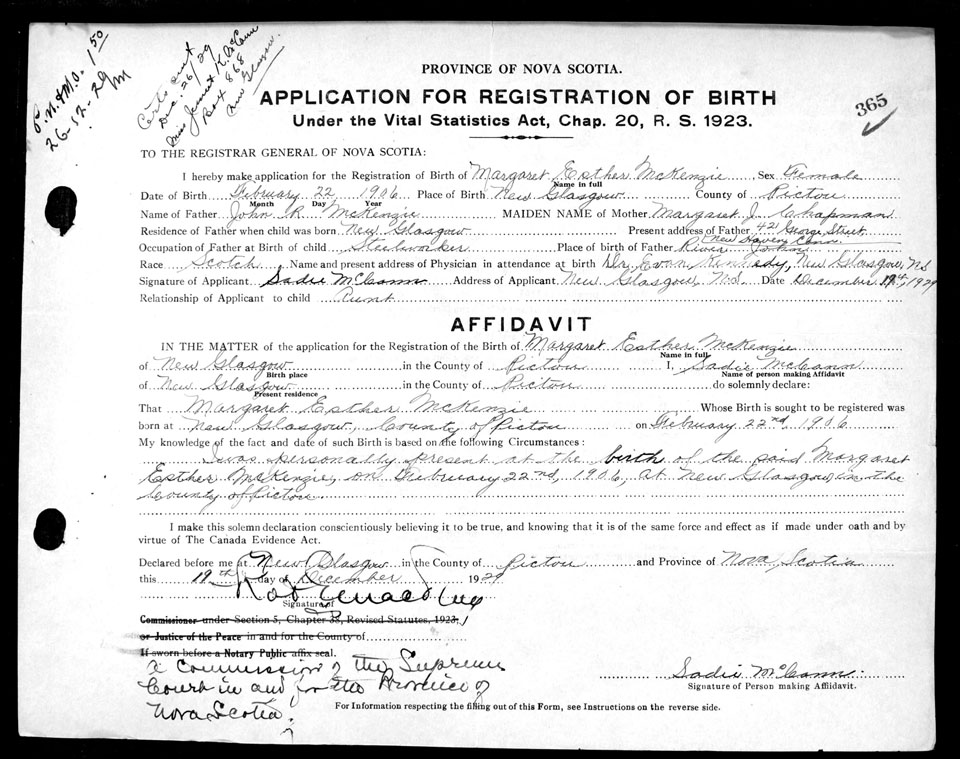 P.N. & M.O. 1.50
26-12-29
Certs sent
Dec. 26/29
Miss Jennet K. McCann
Box 868
New Glasgow.
365
PROVINCE OF NOVA SCOTIA.
APPLICATION FOR REGISTRATION OF BIRTH
Under the Vital Statistics Act, Chap. 20, R. S. 1923.
TO THE REGISTRAR GENERAL OF NOVA SCOTIA:
I hereby make application for the Registration of Birth of Margaret Esther McKenzie Sex Female
Name in full
Date of Birth February 22 1906 Place of Birth New Glasgow County of Pictou
Month Day Year
Name of Father John R. McKenzie MAIDEN NAME of Mother Margaret J. Chapman
Residence of Father when child was born New Glasgow Present address of Father 421 George Street
New Haven, Conn.
Occupation of Father at Birth of child Steelworker Place of birth of Father River John
Race Scotch Name and present address of Physician in attendance at birth Dr. Evan Kennedy, New Glasgow, NS
Signature of Applicant Sadie McCann Address of Applicant New Glasgow, N.S. Date December 19th, 1929
Relationship of Applicant to child Aunt
AFFIDAVIT
IN THE MATTER of the application for the Registration of the Birth of Margaret Esther McKenzie
Name in full
of New Glasgow in the County of Pictou I, Sadie McCann
Birth place Name of person making Affidavit
of New Glasgow in the County of Pictou do solemnly declare:
Present residence
That Margaret Esther McKenzie Whose Birth is sought to be registered was
born at New Glasgow, County of Pictou on February 22nd, 1906
My knowledge of the fact and date of such Birth is based on the following Circumstances:
I was personally present at the birth of the said Margaret
Esther McKenzie, on February 22nd, 1906, at New Glasgow, in the
County of Pictou.
I make this solemn declaration conscientiously believing it to be true, and knowing that it is of the same force and effect as if made under oath and by
virtue of The Canada Evidence Act.
Declared before me at New Glasgow in the County of Pictou and Province of Nova Scotia
this 19th day of December 1929
Signature of
Commissioner under Section 5, Chapter 38, Revised Statutes, 1923,
or Justice of the Peace in and for the County of
If sworn before a Notary Public affix seal.
A Commission of the Supreme
Court in and for the Province of
Nova Scotia.
Sadie McCann
Signature of Person making Affidavit.
For Information respecting the filling out of this Form, see Instructions on the reverse side.